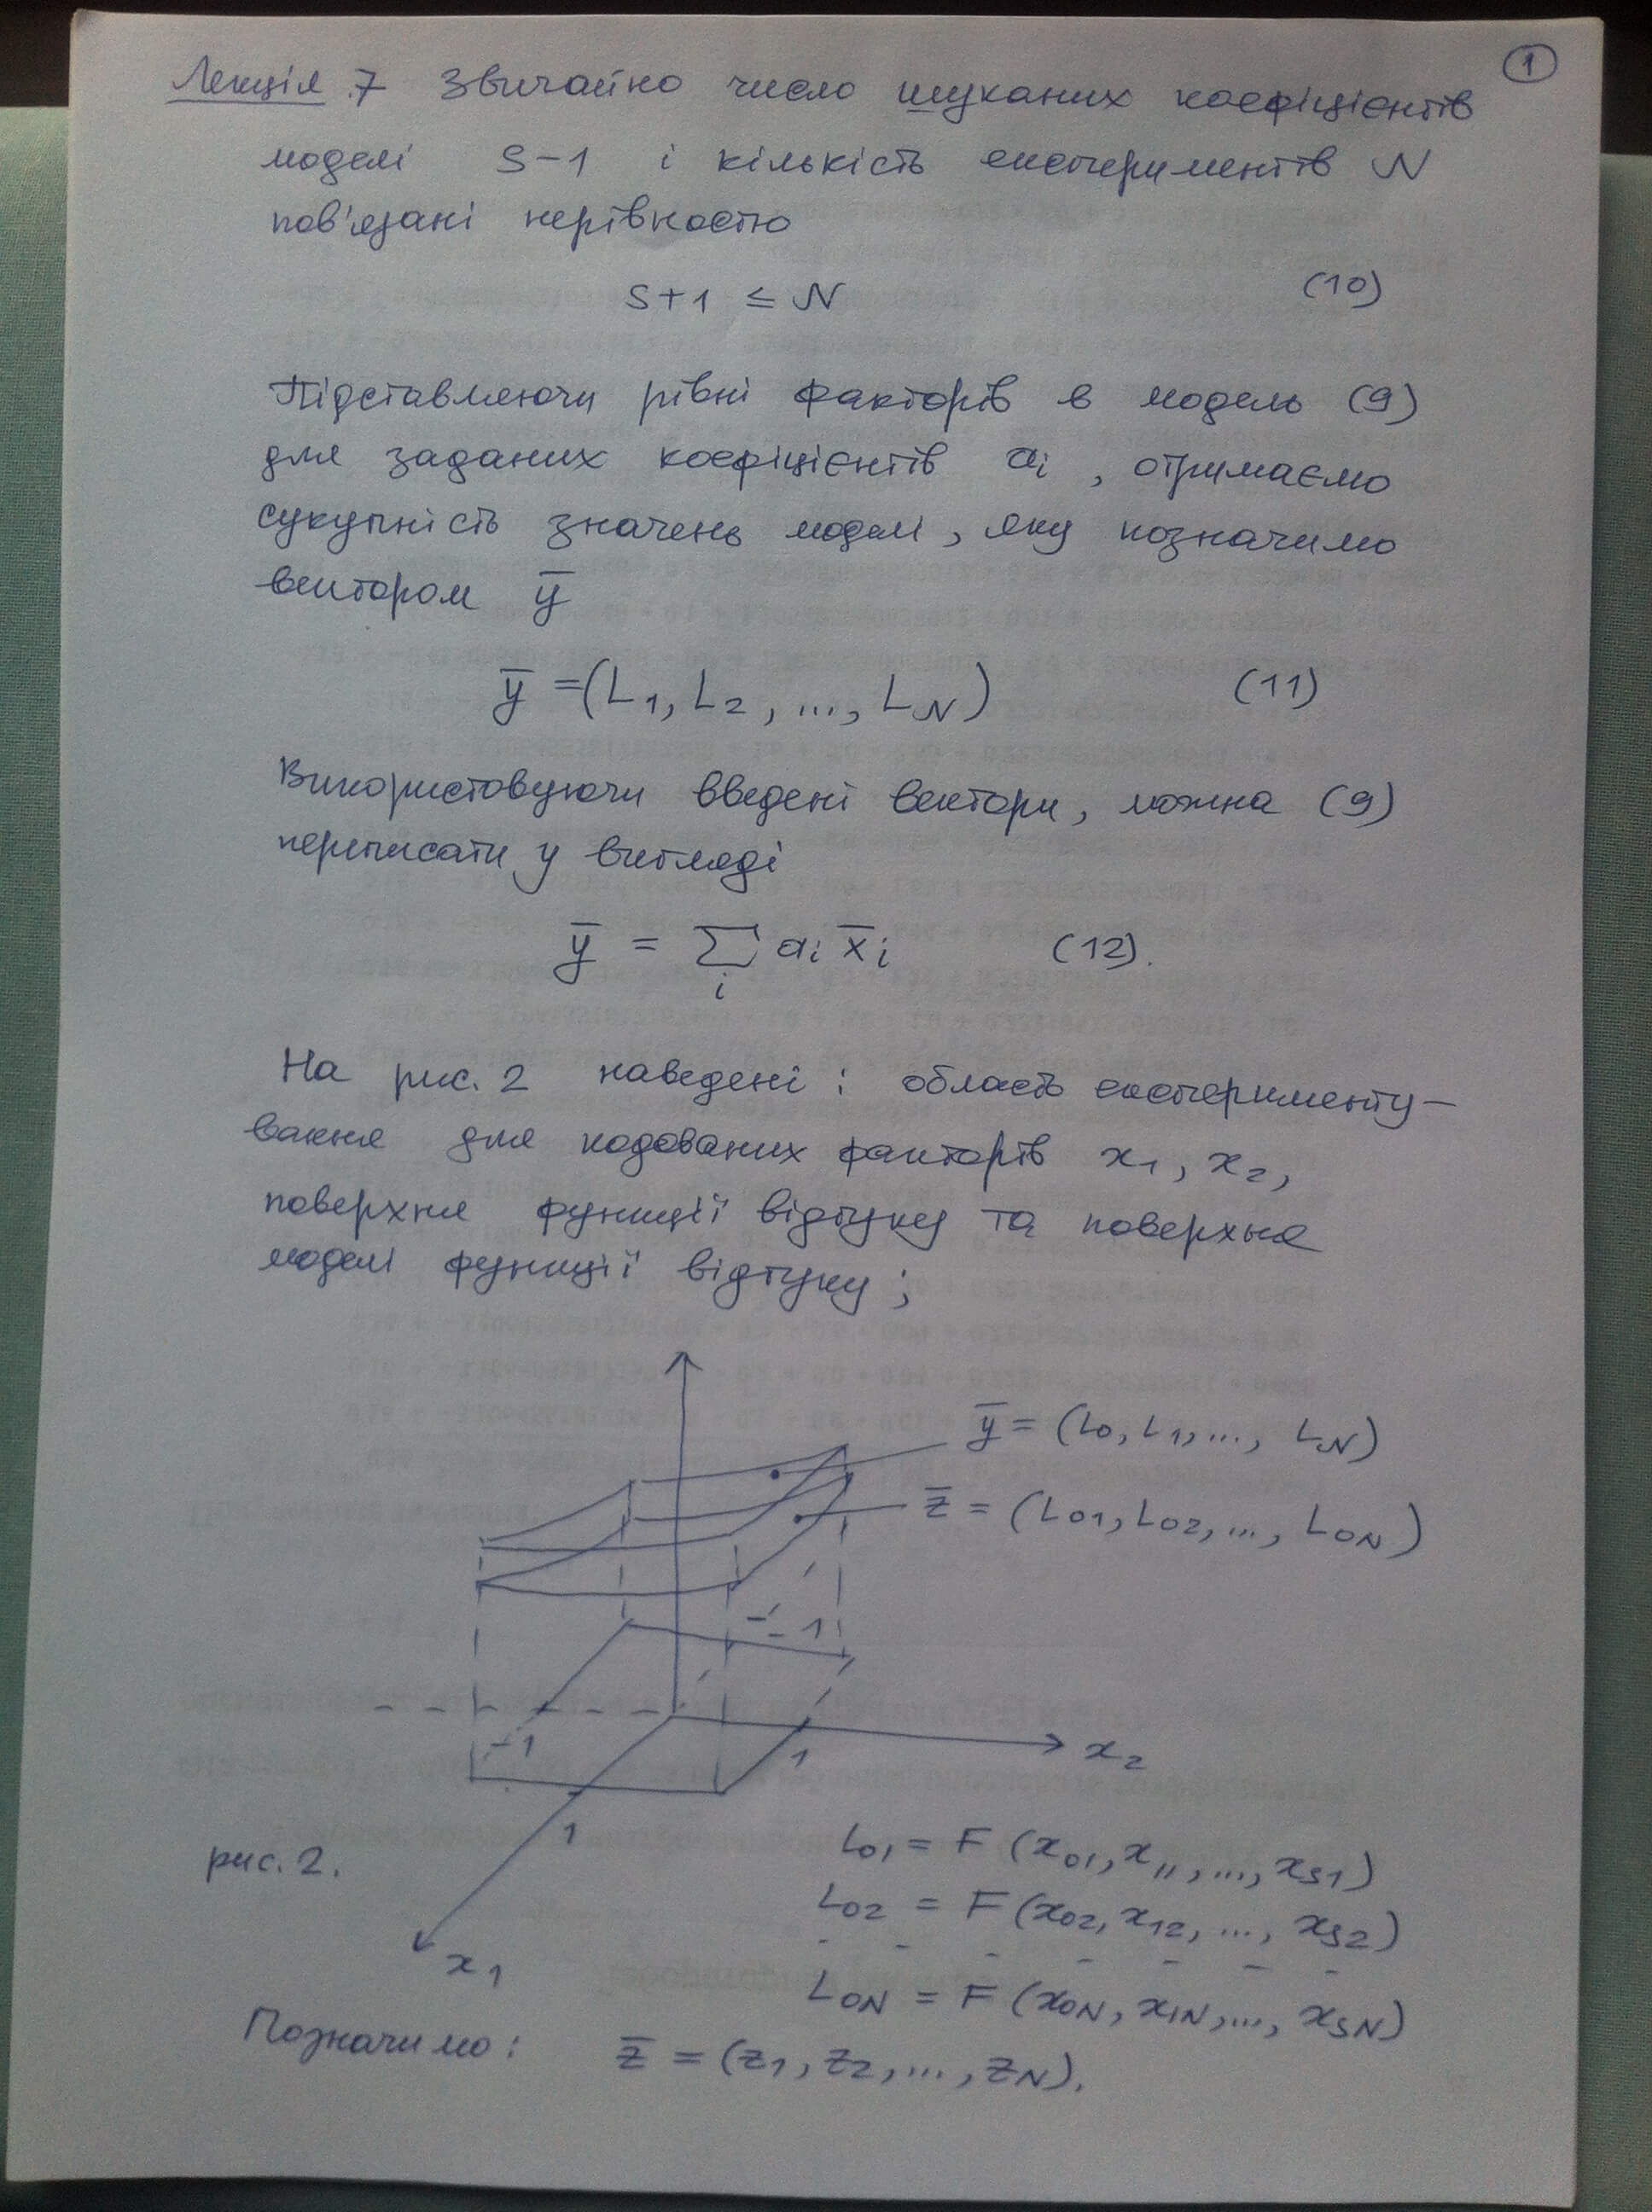 1
Лекція 7 Звичайно число шуканих коефіцієнтів
моделі S-1 і кількість експериментів N
пов'язані нерівностю
S+1 ≤ N (10)
Підставляючи рівні факторів в модель (9)
для заданих коефіцієнтів ai, отримаємо
сукупність значень моделі, яку позначимо
вектором y̅
y̅ =(L1, L2, ..., LN) (11)
Використовуючи введені вектори, можна (9)
переписати у вигляді
y̅ = ∑ ai x̅i (12).
i
На рис. 2 наведені: область експерименту-
вання для кодованих факторів x1, x2,
поверхня функції відгуку та поверхня
моделі функції відгуку;
y̅ = (L0, L1, ..., LN)
z̅ = (L01, L02, ..., L0N)
-1
-1
1
x2
1
x1
рис. 2.
L01 = F (x01, x11, ..., xS1)
L02 = F (x02, x12, ..., xS2)
- - - - - - -
L0N = F (x0N, x1N, ..., xSN)
Позначимо: z̅ = (z1, z2, ..., zN).